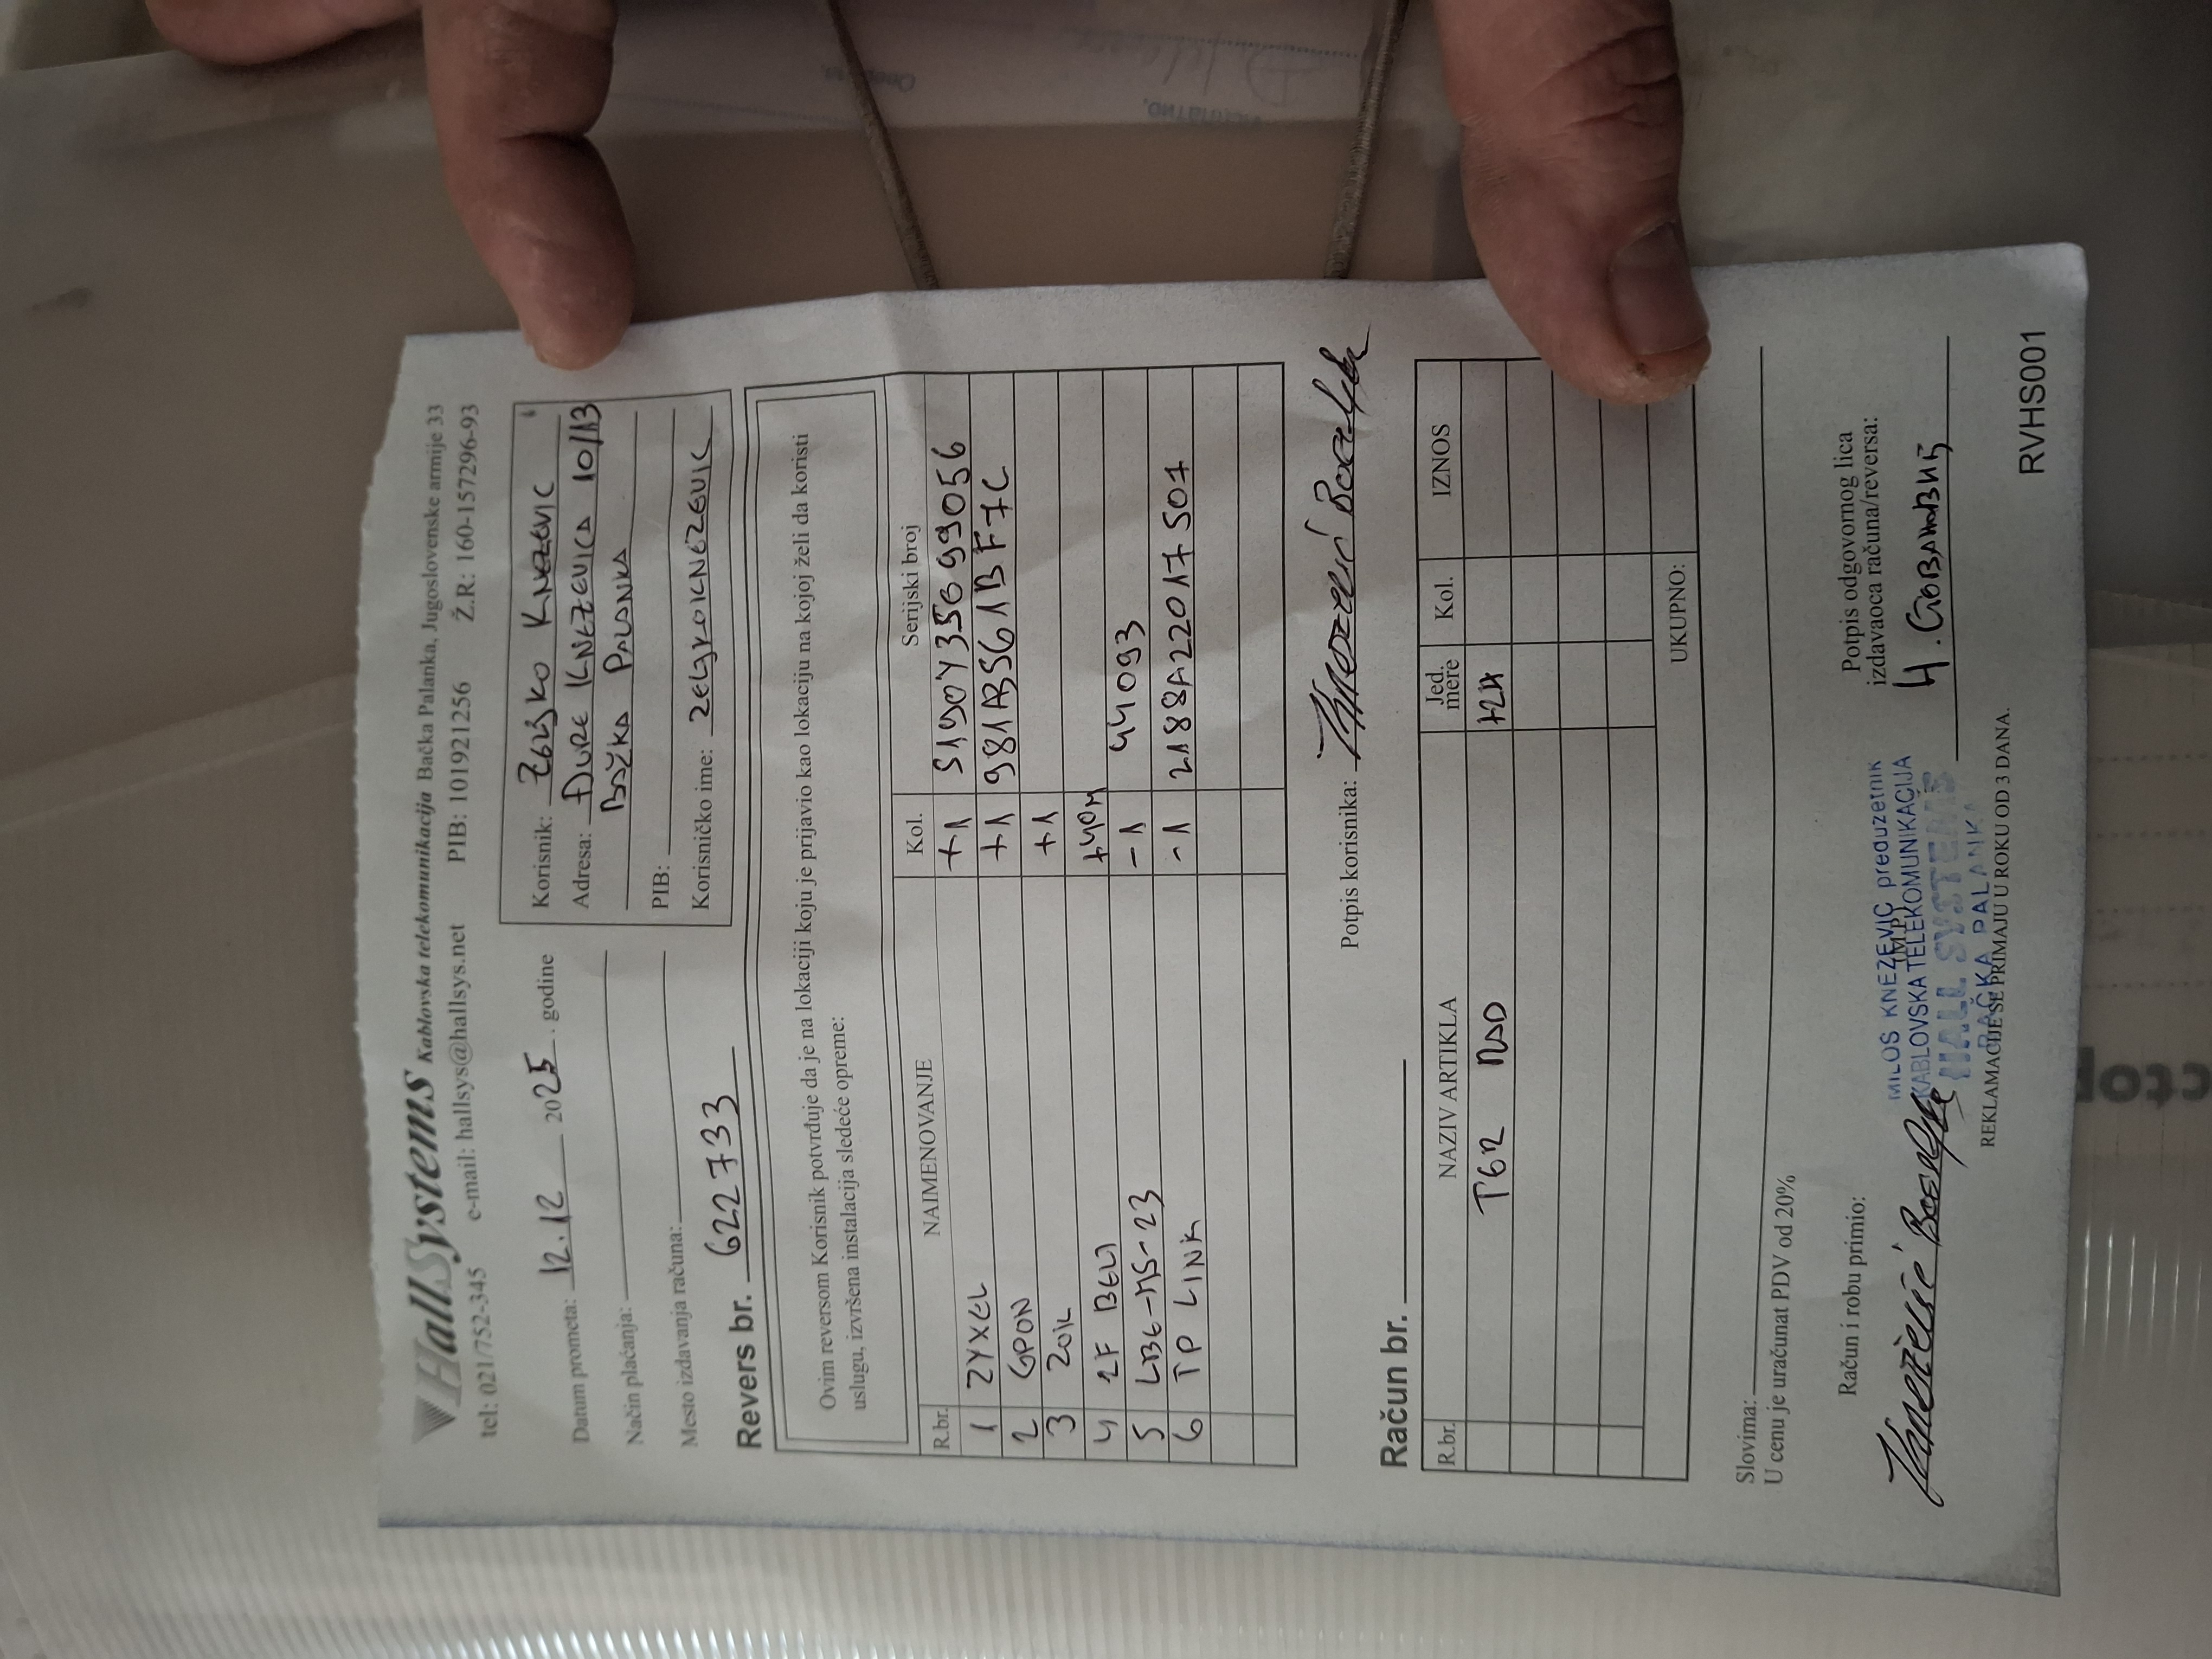 HallSystems Kablovska telekomunikacija Bačka Palanka, Jugoslovenske armije 33
tel: 021/752-345 e-mail: hallsys@hallsys.net PIB: 101921256 Ž.R: 160-157296-93
Datum prometa: 12.12 2025. godine
Način plaćanja:
Mesto izdavanja računa:
Korisnik: ŽELJKO KNEZEVIC
Adresa: ĐURE KNEZEVICA 10/13
BAČKA PALANKA
PIB:
Korisničko ime: ZELJKOKNEZEVIC
Revers br. 622733
Ovim reversom Korisnik potvrđuje da je na lokaciji koju je prijavio kao lokaciju na kojoj želi da koristi
uslugu, izvršena instalacija sledeće opreme:
R.br. NAIMENOVANJE Kol. Serijski broj
1 ZYXEL +1 S190Y35699056
2 GPON +1 981AB561BF7C
3 ZOK +1
4 2F BELI +40M
5 LBE-M5-23 -1 44093
6 TP LINK -1 2188A22017501
Potpis korisnika:
Račun br.
R.br. NAZIV ARTIKLA Jed. mere Kol. IZNOS
UKUPNO:
Slovima:
U cenu je uračunat PDV od 20%
Račun i robu primio:
Potpis odgovornog lica
izdavaoca računa/reversa:
MILOS KNEZEVIC preduzetnik
KABLOVSKA TELEKOMUNIKACIJA
HALL SYSTEMS
BAČKA PALANKA
REKLAMACIJE SE PRIMAJU U ROKU OD 3 DANA.
RVHS001